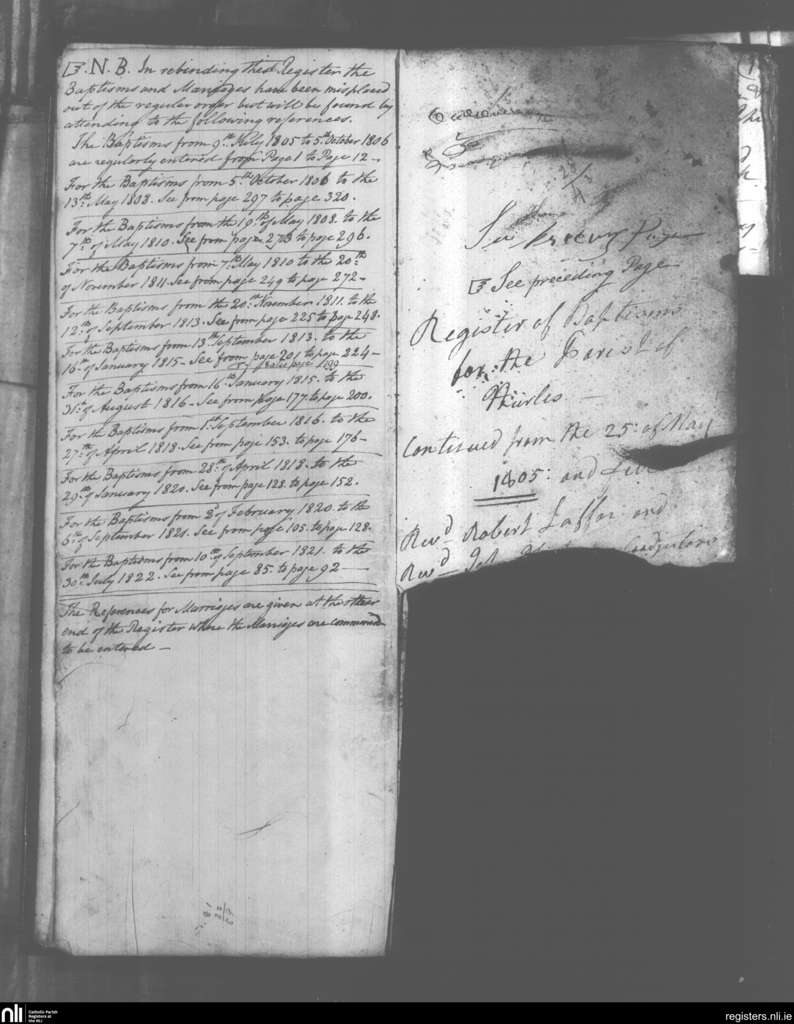 N.B. In rebinding this Register the
Baptisms and Marriages have been misplaced
out of the regular order but will be found by
attending to the following references.
The Baptisms from 9th July 1805 to 5th October 1806
are regularly entered from Page 1 to Page 12 -
For the Baptisms from 5th October 1806 to the
13th May 1808. See from page 297 to page 320.
For the Baptisms from the 19th of May 1808. to the
7th of May 1810. See from page 273 to page 296.
For the Baptisms from 7th May 1810 to the 20th
of November 1811. See from page 249 to page 272 -
For the Baptisms from the 20th November 1811. to the
12th of September 1813. See from page 225 to page 248.
For the Baptisms from 13th September 1813. to the
16th of January 1815 - See from page 201 to page 224 -
page 199
For the Baptisms from 16th January 1815. to the
31st of August 1816 - See from page 177 to page 200.
For the Baptisms from 1st September 1816. to the
27th of April 1818. See from page 153. to page 176 -
For the Baptisms from 28th of April 1818. to the
29th of January 1820. See from page 128. to page 152.
For the Baptisms from of February 1820. to the
6th of September 1821. See from page 105. to page 128.
For the Baptisms from 10th of September 1821. to the
30th July 1822. See from page 85 to page 92
The References for Marriages are given at the other
end of the Register where the Marriages are commenced
to be entered -
See Page
See preceding Page
Register of Baptisms
for the Parish of
Thurles -
Continued from the 25th of May
1805: and
Revd Robert Laffan and
Revd
nli
Catholic Parish
Registers at
the NLI
registers.nli.ie